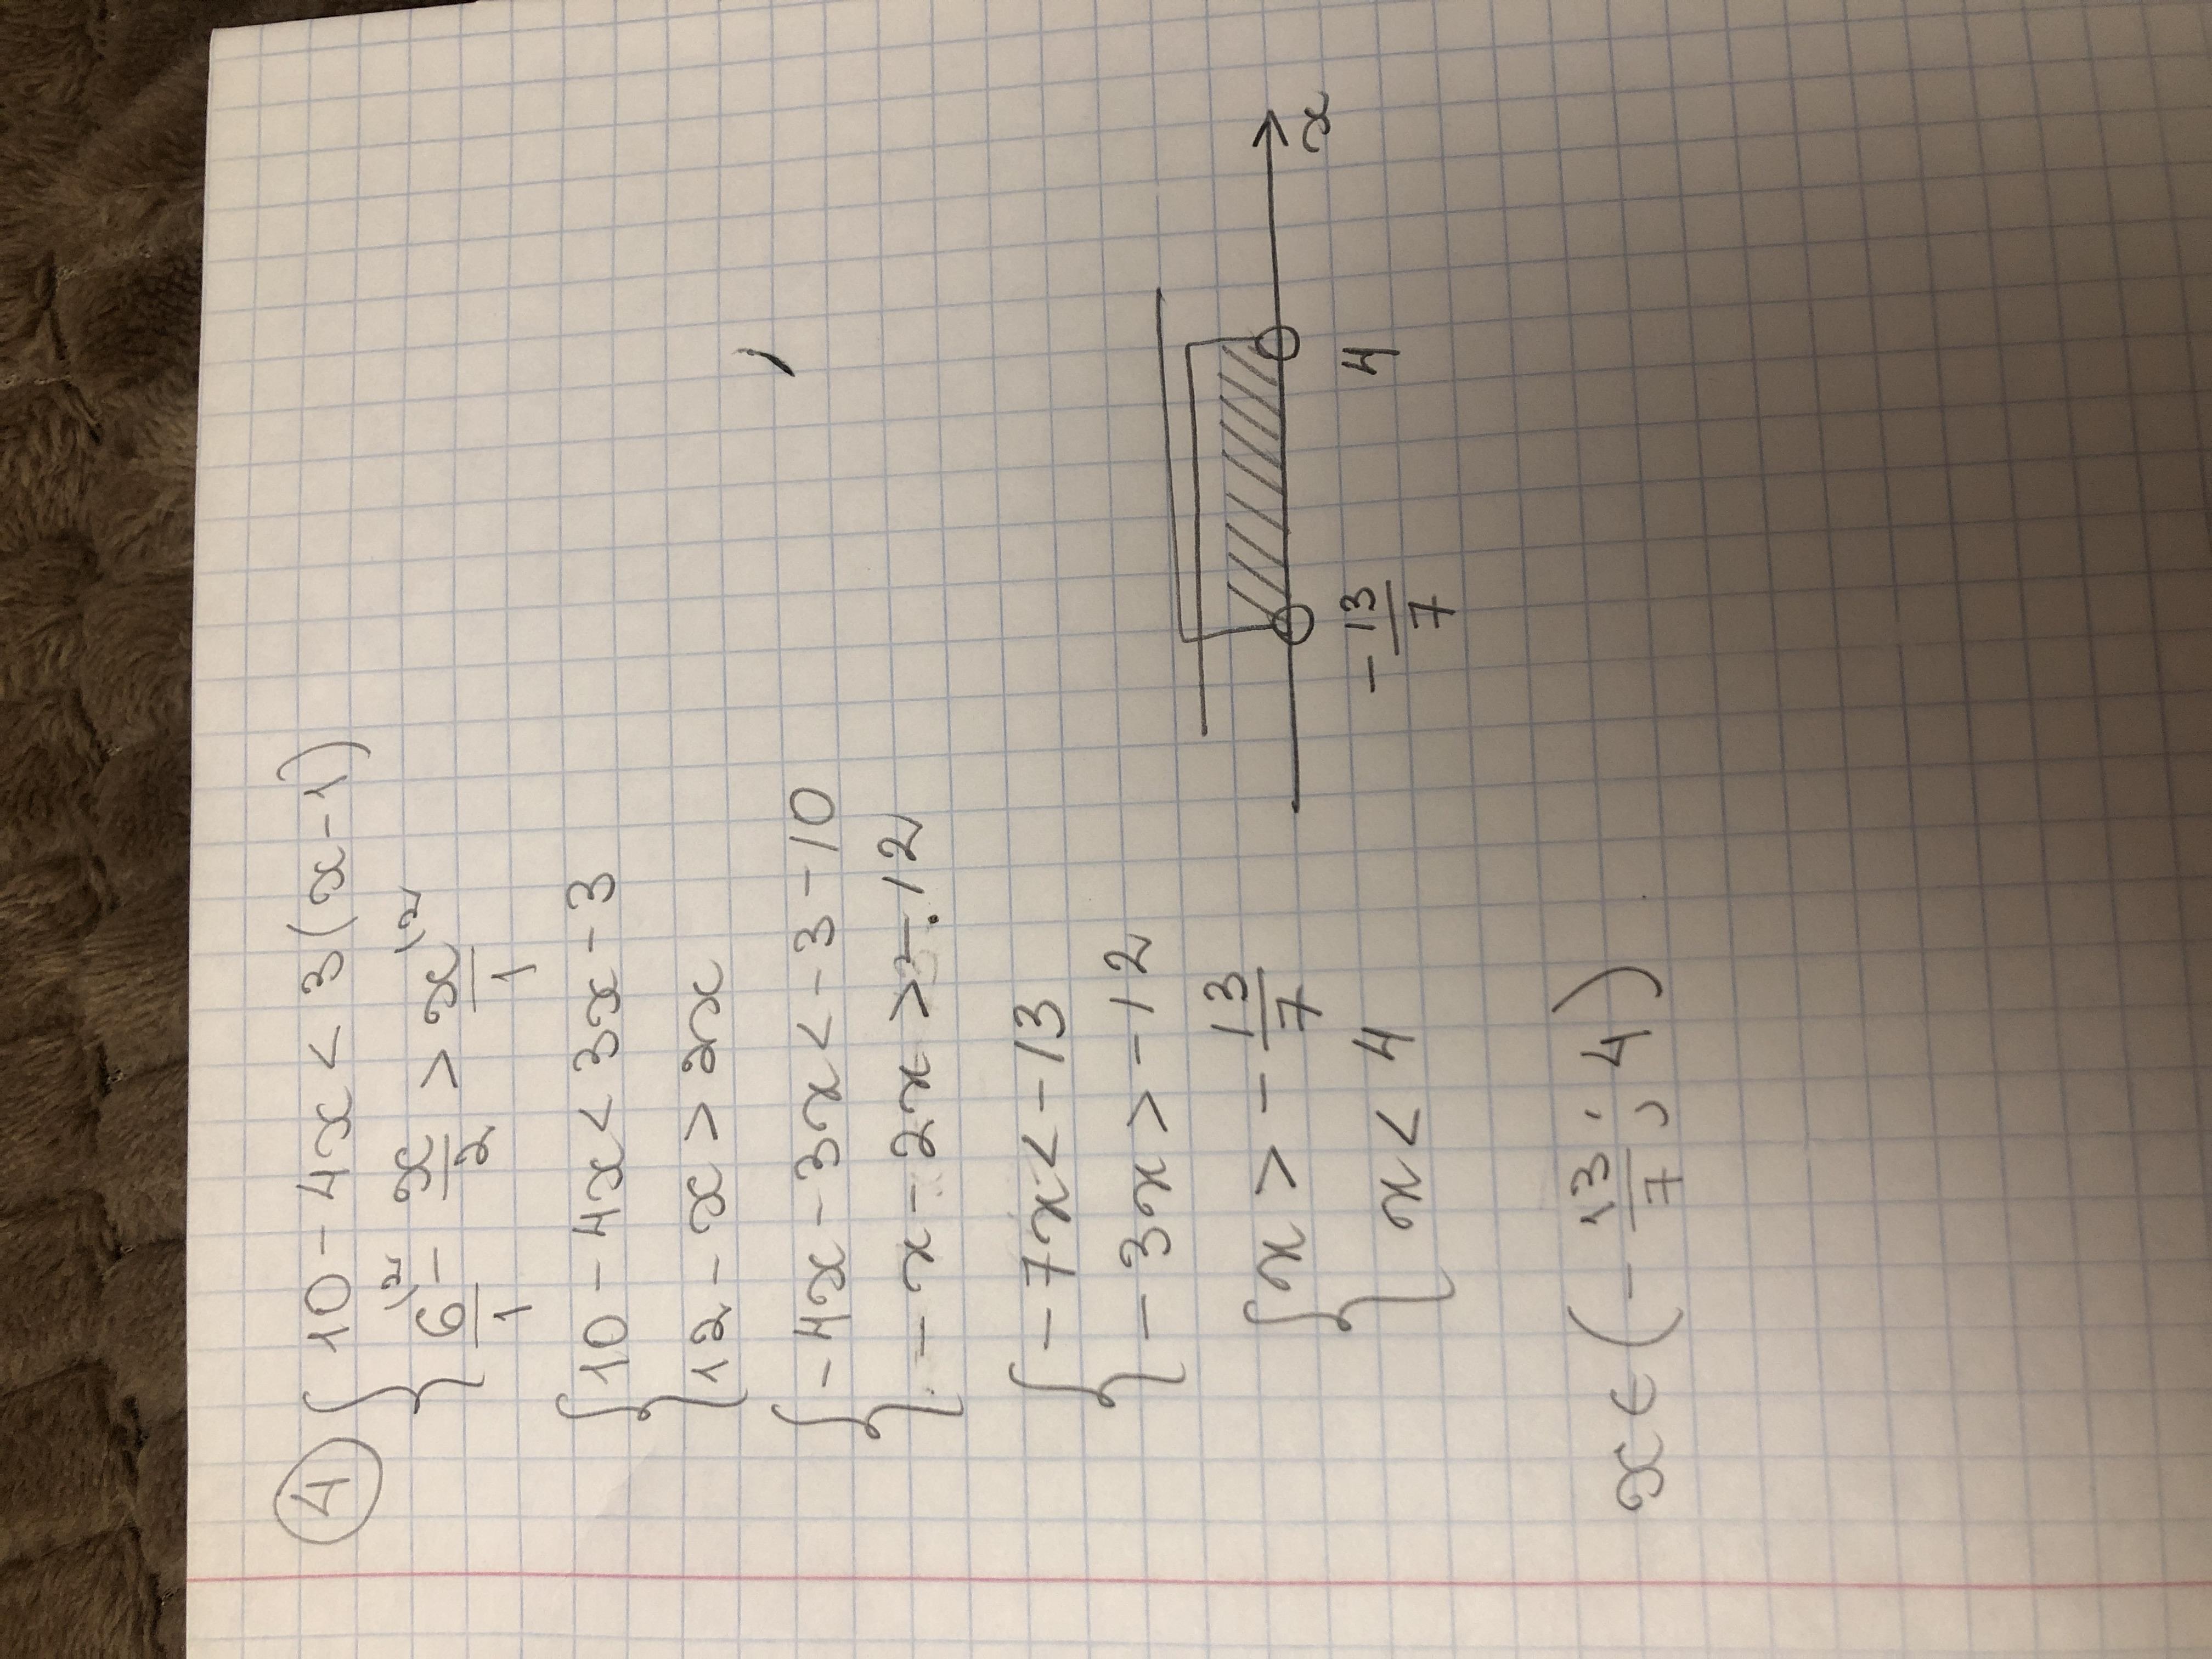 ④ { 10 - 4x < 3(x-1)
6/1 \2 - x/2 > x/1 \2
{ 10 - 4x < 3x - 3
12 - x > 2x
{ -4x - 3x < -3 - 10
- x - 2x > -12
{ -7x < -13
-3x > -12
{ x > -13/7
x < 4
-13/7 4 x
x ∈ (-13/7; 4)